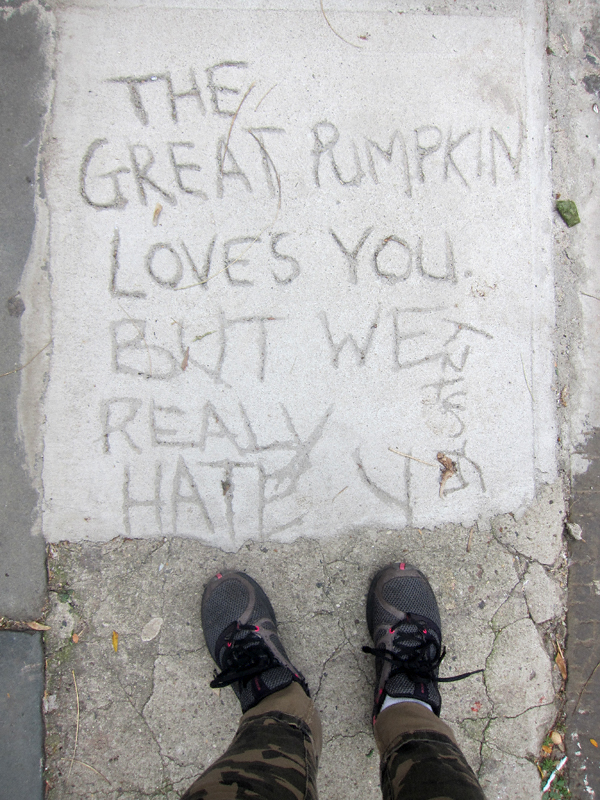 THE
GREAT PUMPKIN
LOVES YOU.
BUT WE
REALY
HATE Y